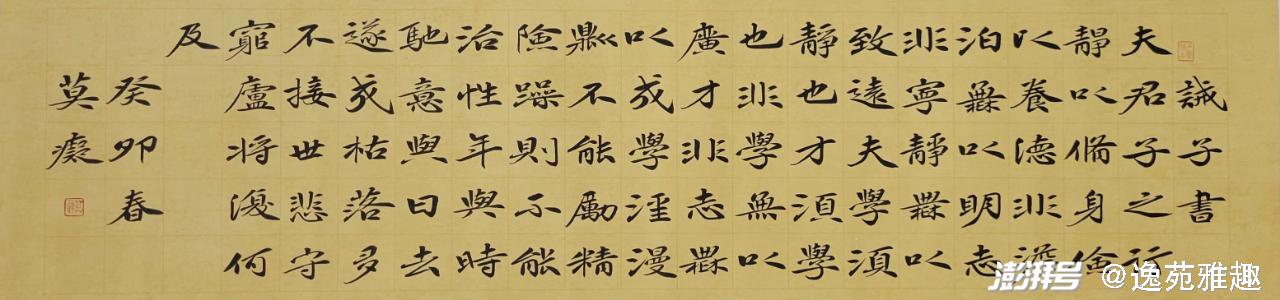 誡子書
夫君子之行
靜以脩身儉
以養德非澹
泊無以明志
非寧靜無以
致遠夫學須
靜也才須學
也非學無以
廣才非志無
以成學淫漫
則不能勵精
險躁則不能
治性年與時
馳意與日去
遂成枯落多
不接世悲守
窮廬將復何
及
癸卯春
莫
澎湃号 @逸苑雅趣